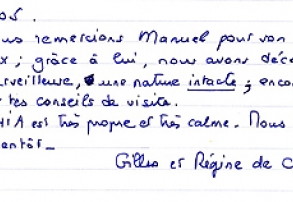 os.
us remercions Manuel pour son
x ; grâce à lui, nous avons déce
erveilleuse, une nature intacte ; enco
r tes conseils de visite.
HIA est très propre et très calme. Nous
entôt_
Gilles et Régine de C